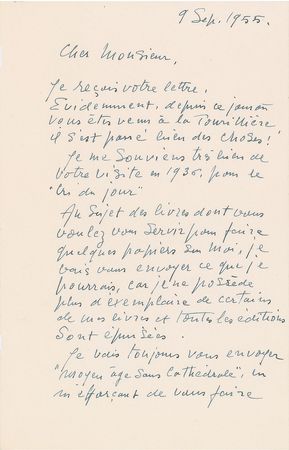 9 Sep. 1955.
Cher Monsieur,
Je reçois votre lettre.
Evidemment, depuis ce jour où
vous êtes venu à la Tourillière
il s'est passé bien des choses!
Je me souviens très bien de
votre visite en 1936, pour le
"Cri du jour"
Au sujet des livres dont vous
voulez vous servir pour faire
quelques papiers sur moi, je
vais vous envoyer ce que je
pourrais, car je ne possède
plus d'exemplaire de certains
de mes livres et toutes les éditions
sont épuisées.
Je vais toujours vous envoyer
"Moyen âge sans cathédrale", en
m'efforçant de vous faire